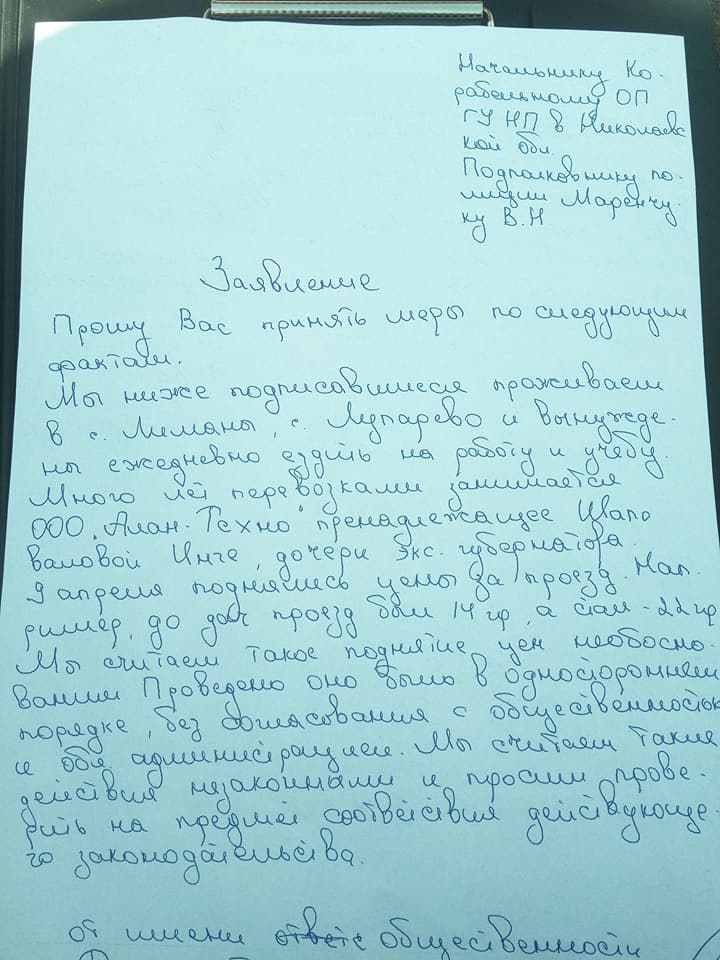 Начальнику Ко-
рабельному ОП
ГУ НП в Николаевс
кой обл.
Подполковнику по-
лиции Маренчу-
ку В.Н
Заявление
Прошу Вас принять меры по следующим
фактам.
Мы ниже подписавшиеся проживаем
в с. Лиманы, с. Лупарево и вынужде-
ны ежедневно ездить на работу и учебу.
Много лет перевозками занимается
ООО "Алан-Техно" пренадлежащее Шапо
валовой Инге, дочери экс. губернатора.
9 апреля поднялись цены за проезд. Нап-
ример, до дач проезд был 14 гр, а стал - 22 гр
Мы считаем такое поднятие цен необосно-
ванным Проведено оно было в одностороннем
порядке, без согласования с общественностью
и обл администрацией. Мы считаем такие
действия незаконными и просим прове-
рить на предмет соответствия действующе-
го законодательства.
от имени ответс общественности